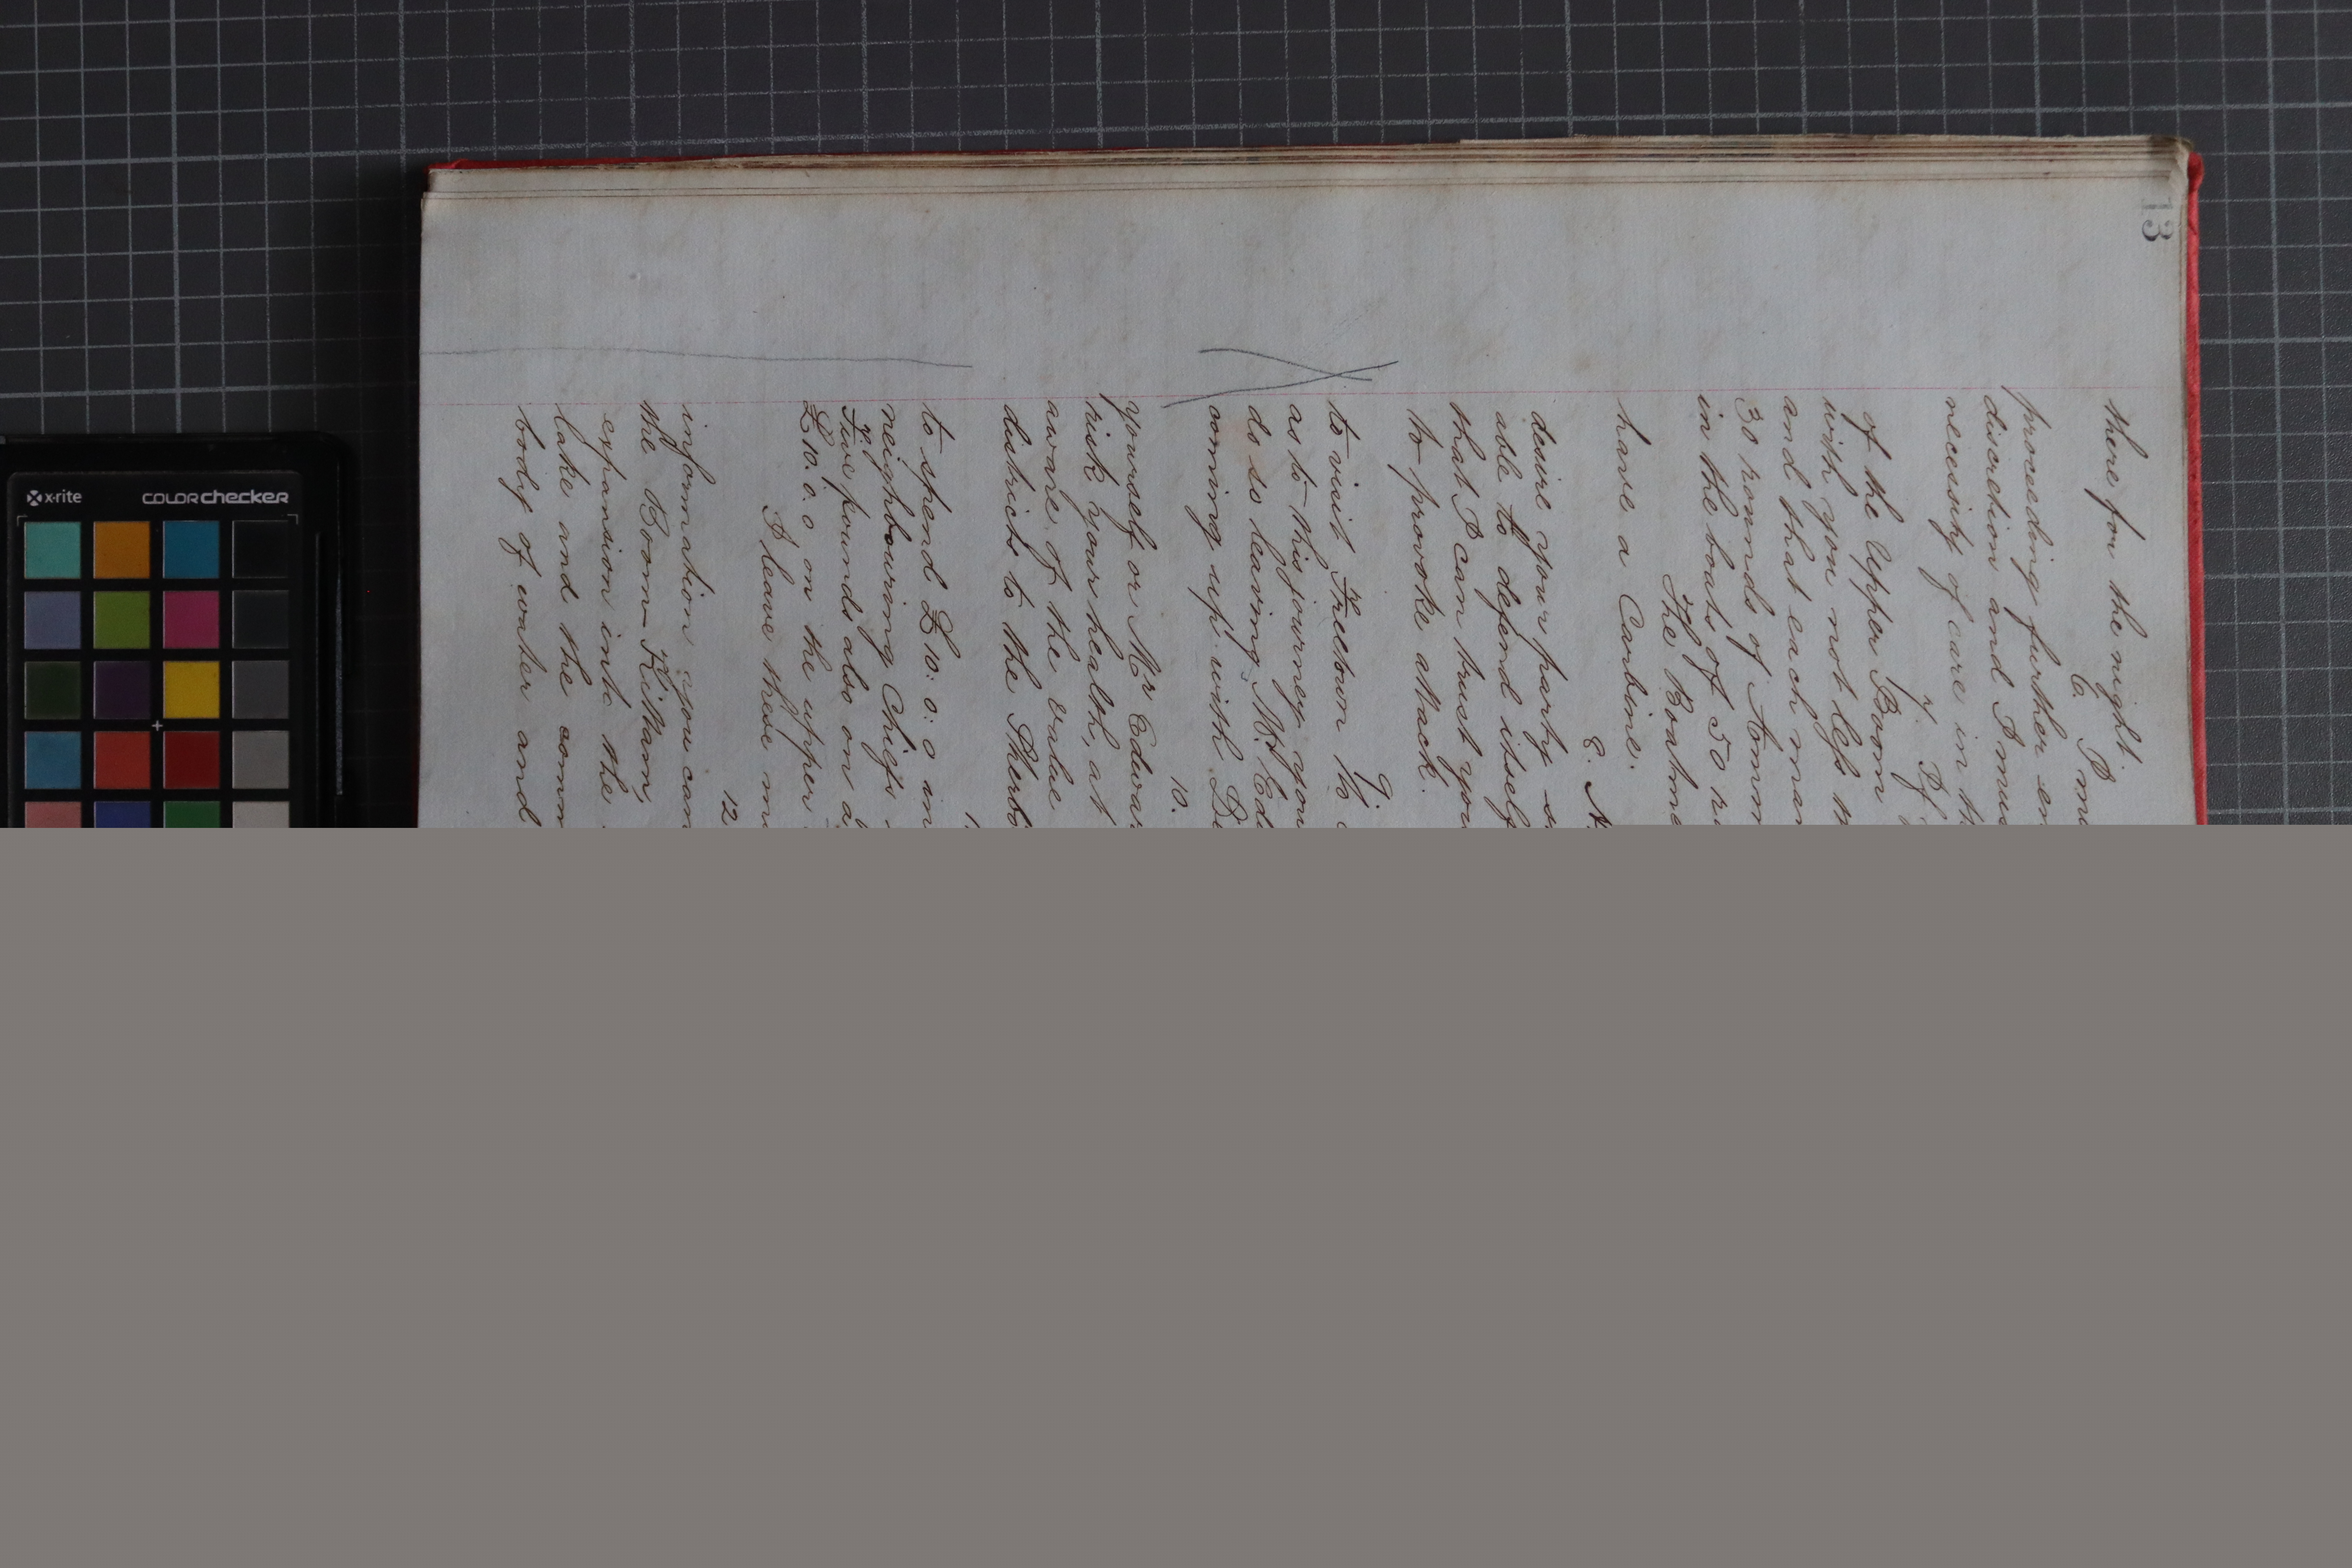 13
there for the night.
6. I
proceeding further
discretion and I
necessity of care in
7. If
of the Upper Boom
with you not less
and that each man
30 rounds of
in the boats of 50
The Boatme
have a Carbine.
8.
desire your party
able to defend itself
that I can trust you
to provoke attack.
9.
to visit Freetown to
as to this journey you
do so leaving Mr
coming up with
10.
yourself or Mr
risk your health, at
aware of the value
districts to the
to spend £10: 0: 0 in
neighbouring Chiefs
Five pounds also on
£10. 0. 0 on the upper
I leave these
12
information you can
the Boom-Kittam,
expansion into the
lake and the
body of water and
x-rite
colorchecker